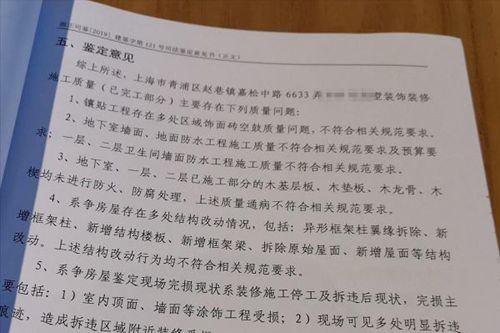 [2019]建鉴字第121号司法鉴定意见书(正文)
五、鉴定意见
综上所述,上海市青浦区赵巷镇嘉松中路6633弄 装饰装修
施工质量(已完工部分)主要存在下列质量问题:
1、镶贴工程存在多处区域饰面砖空鼓质量问题,不符合相关规范要求。
2、地下室墙面、地面防水工程施工质量不符合相关规范要求及预算要
求;一层、二层卫生间墙面防水工程施工质量不符合相关规范要求。
3、地下室、一层、二层已施工部分的木基层板、木垫板、木龙骨、木
楔均未进行防火、防腐处理,上述质量通病不符合相关规范要求。
4、系争房屋存在多处结构改动情况,包括:异形框架柱翼缘拆除、新
增框架柱、新增结构楼板、新增框架梁、拆除原始屋面、新增屋面等结构
改动。上述结构改动行为均不符合相关规范要求。
5、系争房屋鉴定现场完损现状系装修施工停工及拆违后现状,完损主
要包括:1)室内顶面、墙面等涂饰工程受损;2)现场可见多处明显拆违
痕迹,造成拆违区域附近装修受